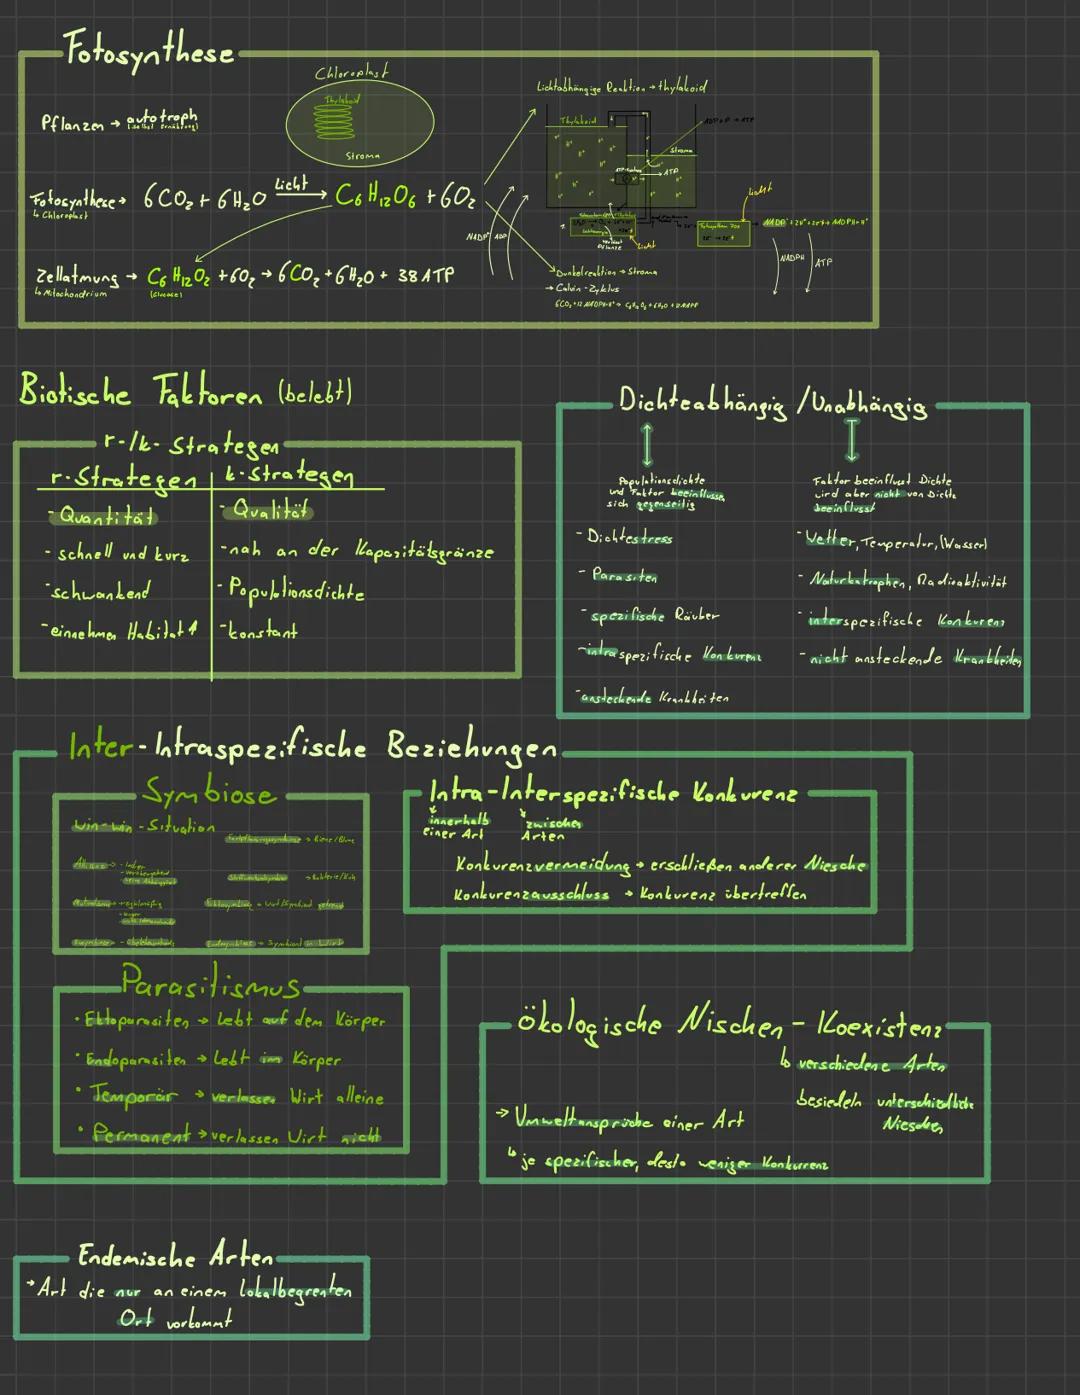 Fotosynthese
Chloroplast
Thylakoid
Stroma
Pflanzen → autotroph
Lichtabhängige Reaktion → thylakoid
Thylakoid
Stroma
ADP+P → ATP
→ ATP
Licht
Fotosynthese → 6CO₂ + 6H₂O Licht → C₆H₁₂O₆ + 6O₂
↳ Chloroplast
NADP⁺ ADP
Licht
NADPH ATP
Zellatmung → C₆H₁₂O₂ + 6O₂ → 6CO₂ + 6H₂O + 38 ATP
↳ Mitochondrium (Glucose)
Dunkelreaktion → Stroma
→ Calvin-Zyklus
Biotische Faktoren (belebt)
r-/k-Strategen
r-Strategen k-Strategen
- Quantität - Qualität
- schnell und kurz - nah an der Kapazitätsgränze
- schwankend - Populationsdichte
- einnehmen Habitat ↑ - konstant
Dichteabhängig / Unabhängig
Populationsdichte
und Faktor beeinflussen
sich gegenseitig
- Dichtestress
- Parasiten
- spezifische Räuber
- intraspezifische Konkurenz
- ansteckende Krankheiten
Faktor beeinflusst Dichte
wird aber nicht von Dichte
beeinflusst
- Wetter, Temperatur, (Wasser)
- Naturkatrophen, Radioaktivität
- interspezifische Konkurenz
- nicht ansteckende Krankheiten
Inter-Intraspezifische Beziehungen
Symbiose
win-win-Situation
→ Biene/Blume
Allianz → - locker
→ Bakterie/Kuh
→ regelmäßig
Ektosymbiose → Wirt/Symbiont getrennt
Endosymbiose → Symbiont in Wirt
Parasitismus
• Ektoparasiten → Lebt auf dem Körper
• Endoparasiten → Lebt im Körper
• Temporär → verlassen Wirt alleine
• Permanent → verlassen Wirt nicht
Intra-Interspezifische Konkurenz
innerhalb
einer Art
zwischen
Arten
Konkurenzvermeidung → erschließen anderer Niesche
Konkurenzausschluss → Konkurenz übertreffen
ökologische Nischen - Koexistenz
↳ verschiedene Arten
besiedeln unterschiedliche
Nieschen
→ Umweltansprüche einer Art
↳ je spezifischer, desto weniger Konkurrenz
Endemische Arten
→ Art die nur an einem lokalbegrenten
Ort vorkommt